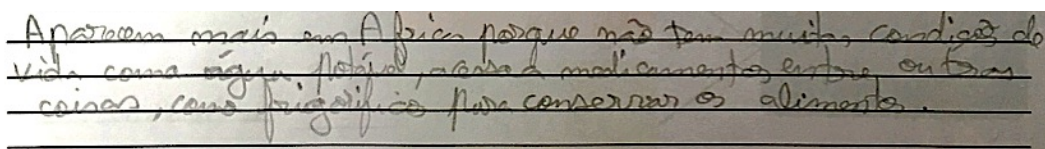 Aparecem mais em Africa porque não tem muitas condições de
vida como água potável, acesso a medicamentos entre outras
coisas, como frigorifico para conservar os alimentos.